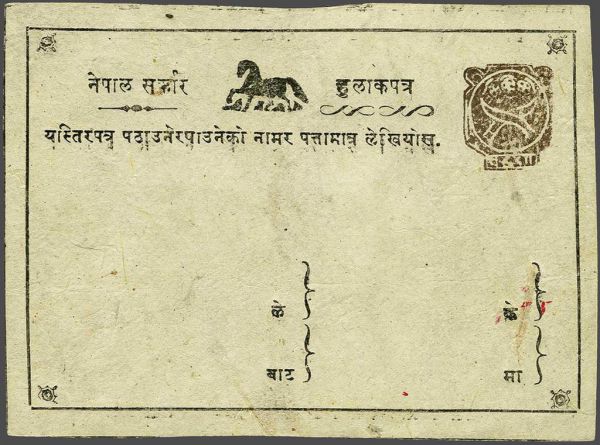 नेपाल सर्कार हुलाकपत्र
यस्तिरपत्र पठाउनेरपाउनेको नामर पत्तामात्र लेखियोस्.
बाट
मा